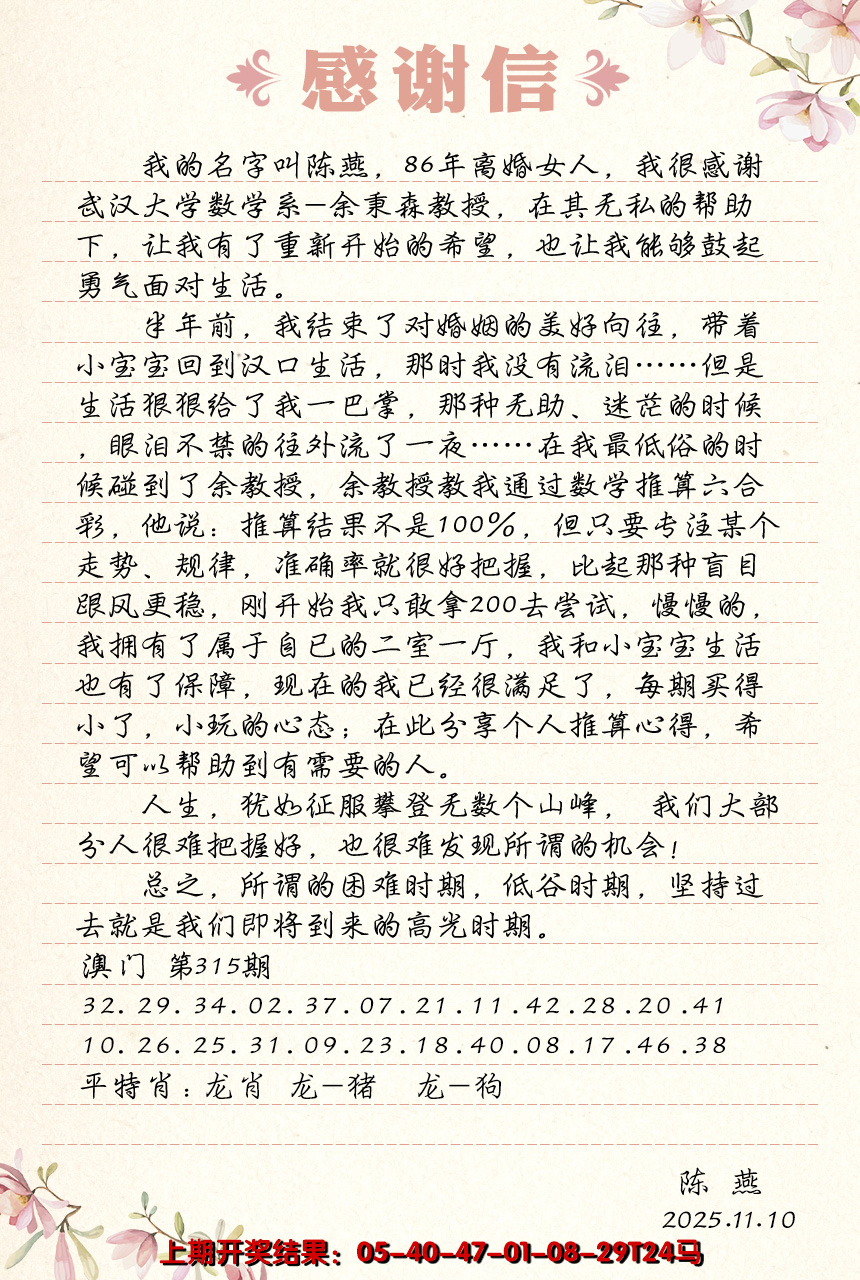 感谢信
我的名字叫陈燕，86年离婚女人，我很感谢
武汉大学数学系—余秉森教授，在其无私的帮助
下，让我有了重新开始的希望，也让我能够鼓起
勇气面对生活。
半年前，我结束了对婚姻的美好向往，带着
小宝宝回到汉口生活，那时我没有流泪……但是
生活狠狠给了我一巴掌，那种无助、迷茫的时候
，眼泪不禁的往外流了一夜……在我最低俗的时
候碰到了余教授，余教授教我通过数学推算六合
彩，他说：推算结果不是100%，但只要专注某个
走势、规律，准确率就很好把握，比起那种盲目
跟风更稳，刚开始我只敢拿200去尝试，慢慢的，
我拥有了属于自已的二室一厅，我和小宝宝生活
也有了保障，现在的我已经很满足了，每期买得
小了，小玩的心态；在此分享个人推算心得，希
望可以帮助到有需要的人。
人生，犹如征服攀登无数个山峰， 我们大部
分人很难把握好，也很难发现所谓的机会！
总之，所谓的困难时期，低谷时期，坚持过
去就是我们即将到来的高光时期。
澳门 第315期
32.29.34.02.37.07.21.11.42.28.20.41
10.26.25.31.09.23.18.40.08.17.46.38
平特肖：龙肖 龙—猪 龙—狗
陈 燕
2025.11.10
上期开奖结果：05-40-47-01-08-29T24马